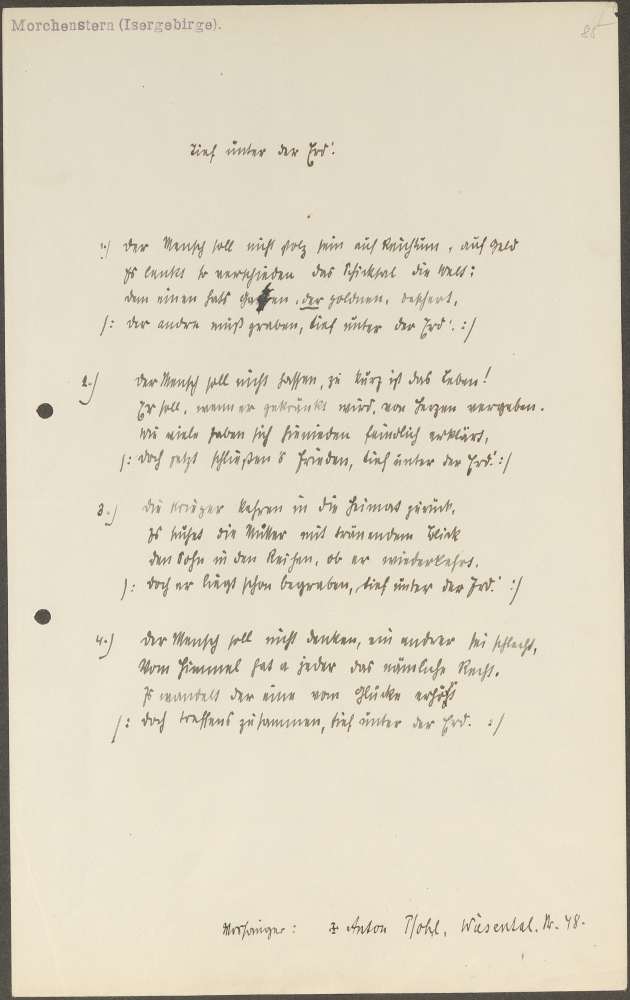 Morchenstern (Isergebirge).
85
Tief unter der Erd'.
1.) Der Mensch soll nicht stolz sein auf Reichtum, auf Geld
Es lenkt so verschieden das Schicksal die Welt:
dem einen hats Gaben, der goldnen, beschert,
/: der andre muß graben, tief unter der Erd'. :/
2.) Der Mensch soll nicht hassen, zu kurz ist das Leben!
Er soll, wenn er gekränkt wird, von Herzen vergeben.
Wie viele haben sich hienieden feindlich erklärt,
/: doch jetzt schließen s Frieden, tief unter der Erd.' :/
3.) Die Krieger kehren in die Heimat zurück,
Es suchet die Mutter mit tränendem Blick
den Sohn in den Reihen, ob er wiederkehrt.
/: doch er liegt schon begraben, tief unter der Erd.' :/
4.) Der Mensch soll nicht denken, ein andrer sei schlecht,
Vom Himmel hat a jeder das nämliche Recht.
Es wandelt der eine vom Glücke erhöht
/: doch treffens zusammen, tief unter der Erd. :/
Vorsänger: Anton Wiesental. Nr. 48.